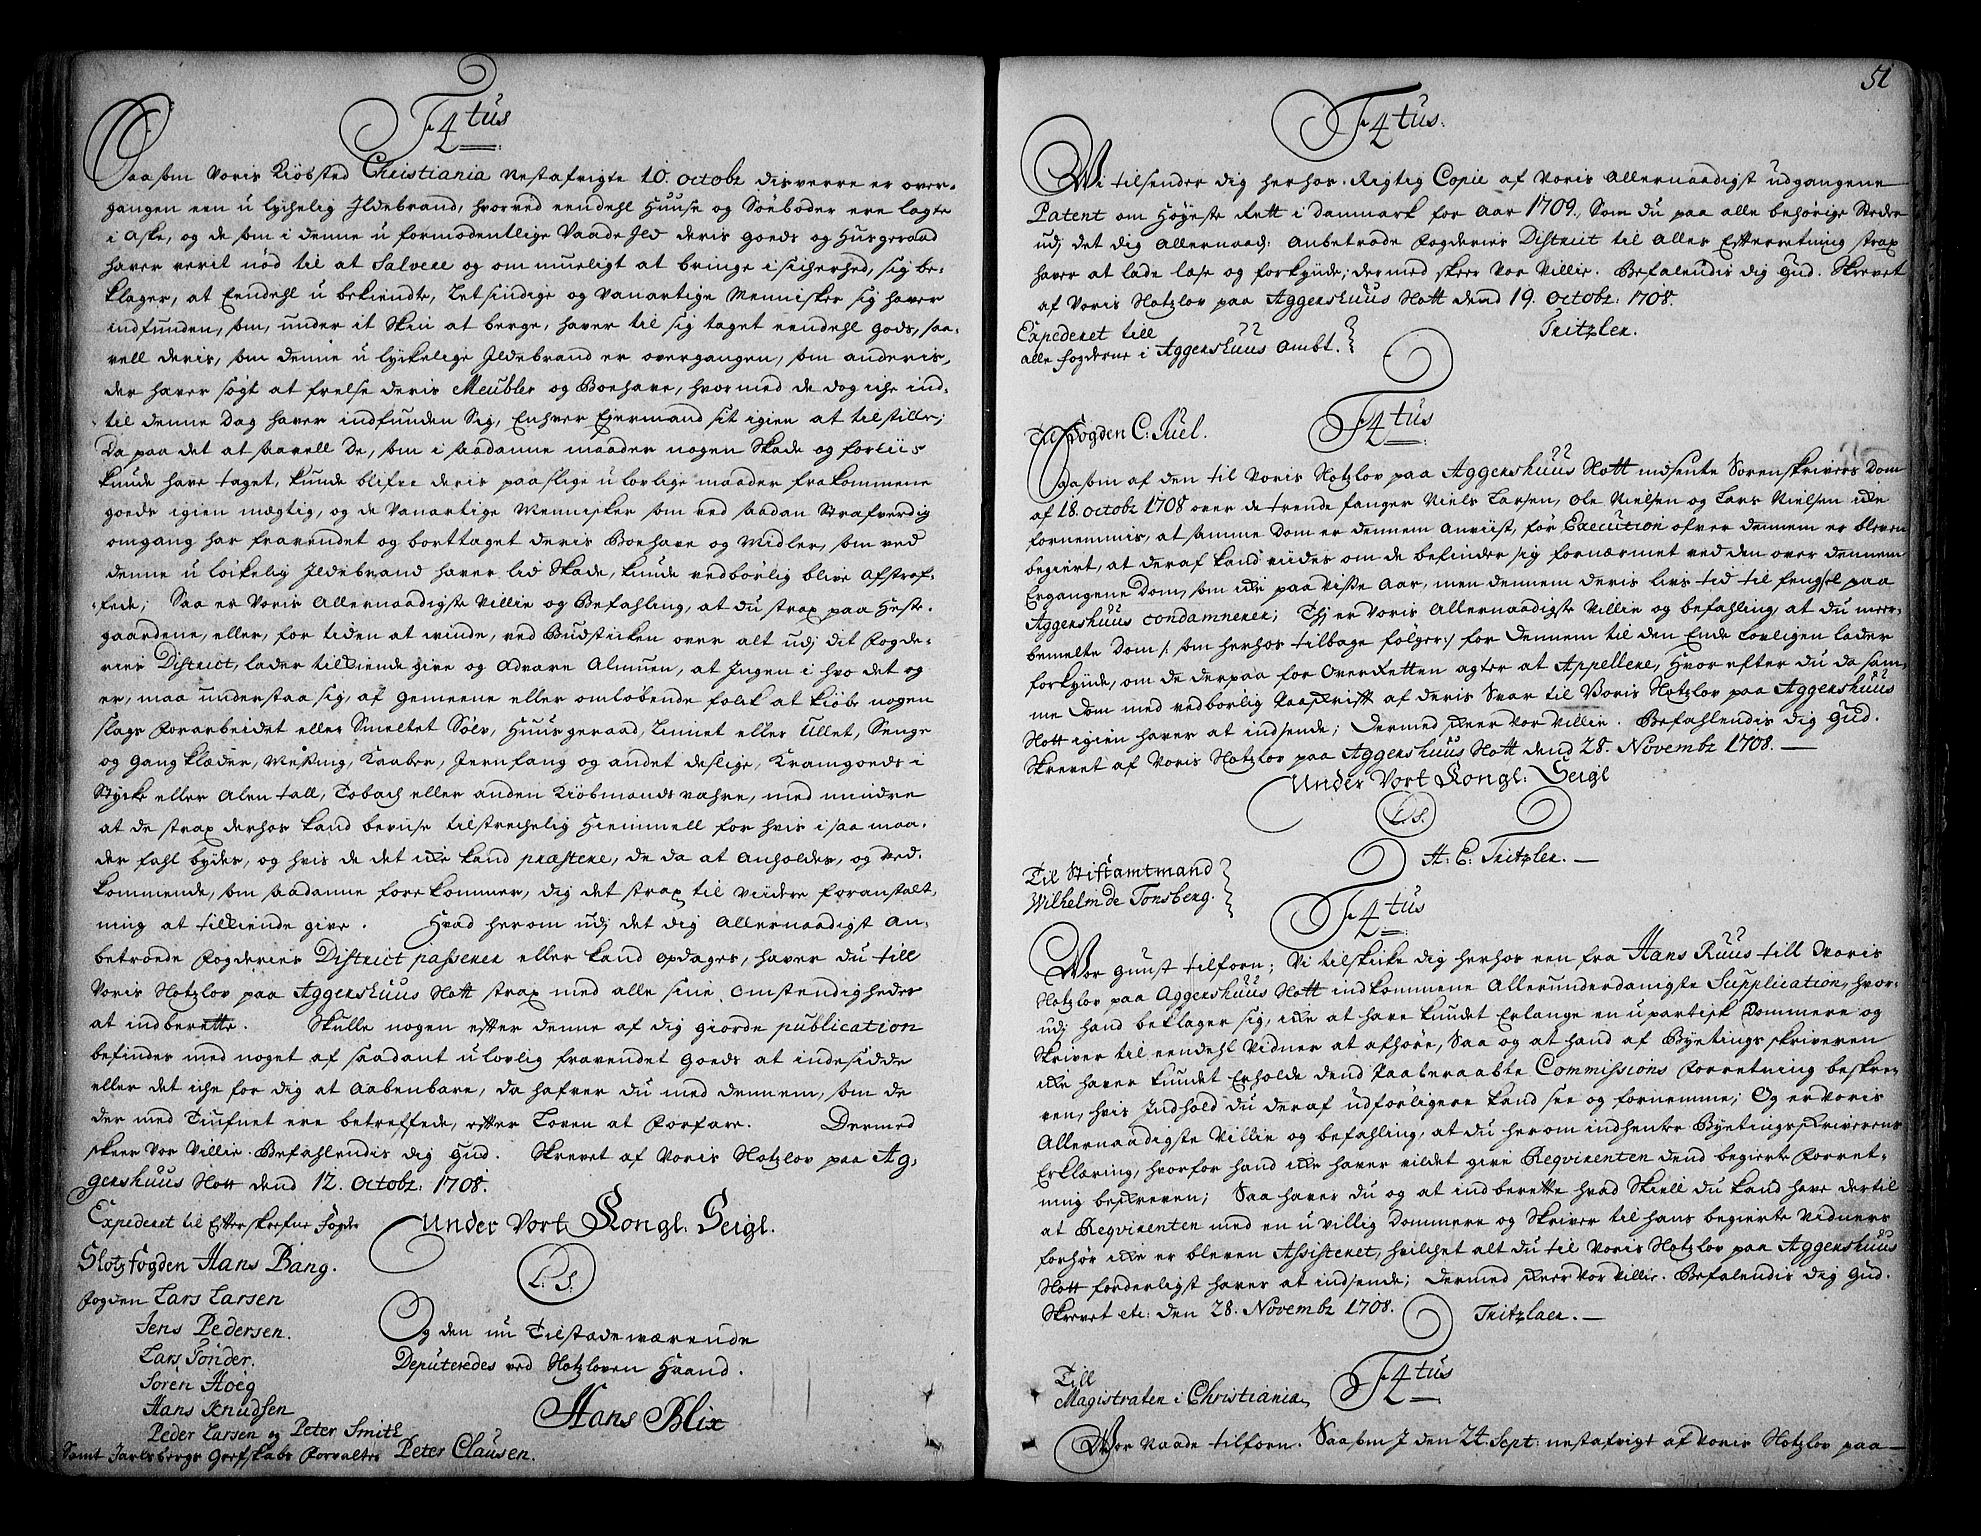 F4tus
Saasom Voris Kiøbsted Christiania nestafvigte 10. octobr disverre er over-
gangen een u lychelig Ildebrand, hvorved eendehl Huuse og Søeboder ere lagte
i Aske, og de som i denne u formodentlige Vaade Ild deris goeds og Husgeraad
haver verit nød til at Salvere og om mueligt at bringe i sicherhed, sig be-
klager, at Eendehl u bekiendte, Letsindige og Vanartige Mennisker sig haver
indfunden, som, under it Skin at berge, haver til sig taget eendehl gods, saa-
vell deris, som denne u lykelige Ildebrand er overgangen, som anderis,
der haver søgt at frelse deris Meubler og Boehave, hvormed de dog iche ind-
til denne Dag haver indfunden Sig, Enhver Eyermand sit igien at tilstille;
Da paa det at saavell De, som i saadanne maader nogen Skade og forliis
kunde have taget, kunde blifve deris paa slige u lovlige maader frakommene
goeds igien mægtig, og de Vanartige Mennisker som ved saadan Strafverdig
omgang har fravendet og borttaget deris Boehave og Midler, som ved
denne u løikelig Ildebrand haver lid Skade, kunde vedbørlig blive Afstraf-
fede; Saa er Voris Allernaadigste Villie og Befahling, at du strax paa Heste-
gaardene, eller, for tiden at vinde, ved Budsticken over alt udj dit Fogde-
ries District, lader tilkiende give og Advare Almuen, at Ingen i hvo det og
er, maa understaa sig, af gemeene eller omløbende folk at kiøbe nogen
slags Forarbeidet eller Smeltet Sølv, Huusgeraad, Linnet eller Ullet, Senge
og Gangklæder, Messing, Kaaber, Jernfang og andet deslige, Kramgoeds i
Stycke eller Alen tall, Tobach eller anden Kiøbmands vahre, med mindre
at de strax derhos kand beviise tilstrechelig Hiemmell for hvis i saa maa-
der fahl bydes, og hvis de det icke kand præstere, de da at Anholdes, og Ved-
kommende, som saadanne forekommer, dig det strax til viidere Foranstalt-
ning at tilkiende give. Hvad herom udj det dig Allernaadigst An-
betroede Fogderies District passerer eller kand opdages, haver du till
Voris Slotzlov paa Aggershuus Slott strax med alle sine omstendigheder
at indberette. Skulle nogen efter denne af dig giorde publication
befindes med noget af saadant u lovlig fravendet Goeds at indesidde
eller det iche for dig at Aabenbare, da hafver du med dennem, som de
der med Tiufnet ere betreffede, efter Loven at Forfare. Dermed
skeer Vor Villie. Befahlendis dig Gud. Skrevet af Voris Slotzlov paa Ag-
gershuus Slott dend 12. Octobr: 1708.
Expederet til Efterskrefne Fogder
Under Vort Kongl. Seigl.
Slotzfogden Hans Bang.
L. S.
Fogden Lars Larsen
Jens Pedersen.
Lars Tønder.
Søren Høeg
Hans Knudsen
Peder Larsen og Peter Smith
Samt Jarlsbergs Grefskabs Forvalter Peter Clausen.
Og den nu Tilstedeværende
Deputeredes ved Slotzloven Haand.
Hans Blix
51
F4tus.
Wi tilsender dig herhos Rigtig Copie af Voris Allernaadigst udgangene
Patent om Høyeste Rett i Danmark for Aar 1709, Som du paa alle behørige Steder
udj det dig Allernaad: Anbetrode Fogderies District til Alles Efterretning strax
haver at lade læse og forkynde; dermed skeer Vor Villie. Befalendis dig Gud. Skrevet
af Voris Slotzlov paa Aggershuus Slott dend 19. Octobr: 1708.
Tritzler.
Expederet till
alle fogderne i Aggershuus Ambt.
F4tus
Til Fogden C: Juel.
Saasom af den til Voris Slotzlov paa Aggershuus Slott indsente Sorenskrivers Dom
af 18. octobr 1708 over de trende fanger Niels Larsen, Ole Nielsen og Lars Nielsen icke
fornemmis, at samme Dom er dennem Anviist, før Execution ofver dennem er bleven
begiert, at deraf kand viides om de befinder sig fornærmet ved den over dennem
Ergangene Dom, som icke paa Visse Aar, men dennem deris livs tid til fengsel paa
Aggershuus condamnerer; Thj er Voris Allernaadigste Villie og befahling, at du meer-
bemelte Dom /: som herhos tilbage følger:/ for dennem til den Ende lovligen lader
forkynde, om de derpaa for OverRetten agter at Appellere, Hvorefter du da sam-
me Dom med vedbørlig Paaskrift af deris Svar til Voris Slotzlov paa Aggershuus
Slott igien haver at indsende; Dermed skeer Vor Villie. Befahlendis dig Gud.
Skrevet af Voris Slotzlov paa Aggershuus Slott dend 28. Novembr 1708.
Under Vort Kongl: Seigl
L. S.
H. C. Tritzler.
Til Stiftamtmand
Wilhelm de Tonsberg.
F4tus
Wor gunst tilforn; Vi tilskicke dig herhos een fra Hans Ruus till Voris
Slotzlov paa Aggershuus Slott indkommene Allerunderdanigste Supplication, hvor-
udj hand beklager sig, icke at have kundet Erlange en upartisk Dommere og
Skriver til eendehl Vidner at afhøre, Saa og at hand af Byetings skriveren
icke haver kundet Erholde dend Paaberaabte Commissions Forretning beskre-
ven, hvis Indhold du deraf udførligere kand see og fornemme; Og er Voris
Allernaadigste Villie og befahling, at du herom indhenter Byetingsskriverens
Erklæring, hvorfor hand icke haver vildet give Reqvirenten dend begierte Forret-
ning beskreven; Saa haver du og at indberette hvad Skiell du kand have dertil
at Reqvirenten med en u villig Dommere og Skriver til hans begierte Vidners
forhør icke er bleven Assisteret, hvilchet alt du til Voris Slotzlov paa Aggershuus
Slott forderligst haver at indsende; Dermed skeer Vor Villie. Befalendis dig Gud.
Skrevet etc: den 28. Novembr 1708. Tritzler.
Till
Magistraten i Christiania,
F4tus
Wor Naade tilforn. Saasom I den 24. Sept: nestafvigt af Voris Slotzlov paa